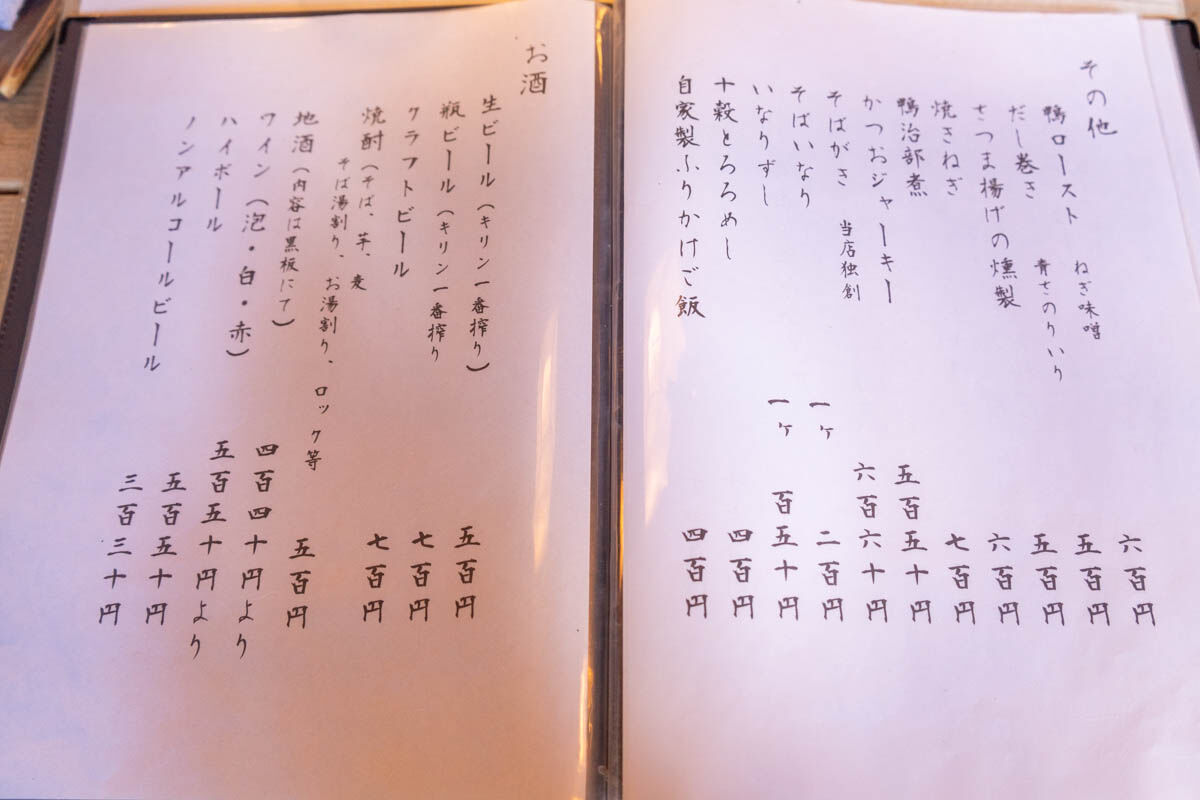 その他
鴨ロースト ねぎ味噌 六百円
だし巻き 青さのりいり 五百円
さつま揚げの燻製 五百円
焼きねぎ 六百円
鴨治部煮 七百円
かつおジャーキー 五百五十円
そばがき 当店独創 六百六十円
そばいなり 一ヶ 二百円
いなりずし 一ヶ 百五十円
十穀とろろめし 四百円
自家製ふりかけご飯 四百円
お酒
生ビール（キリン一番搾り） 五百円
瓶ビール（キリン一番搾り 七百円
クラフトビール 七百円
焼酎（そば、芋、麦
そば湯割り、お湯割り、ロック等 五百円
地酒（内容は黒板にて） 四百四十円より
ワイン（泡・白・赤） 五百五十円より
ハイボール 五百五十円
ノンアルコールビール 三百三十円